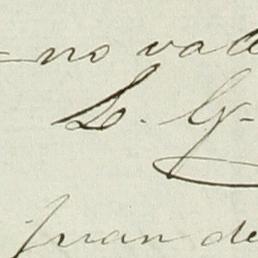 - no vale
L. G-
Juan de